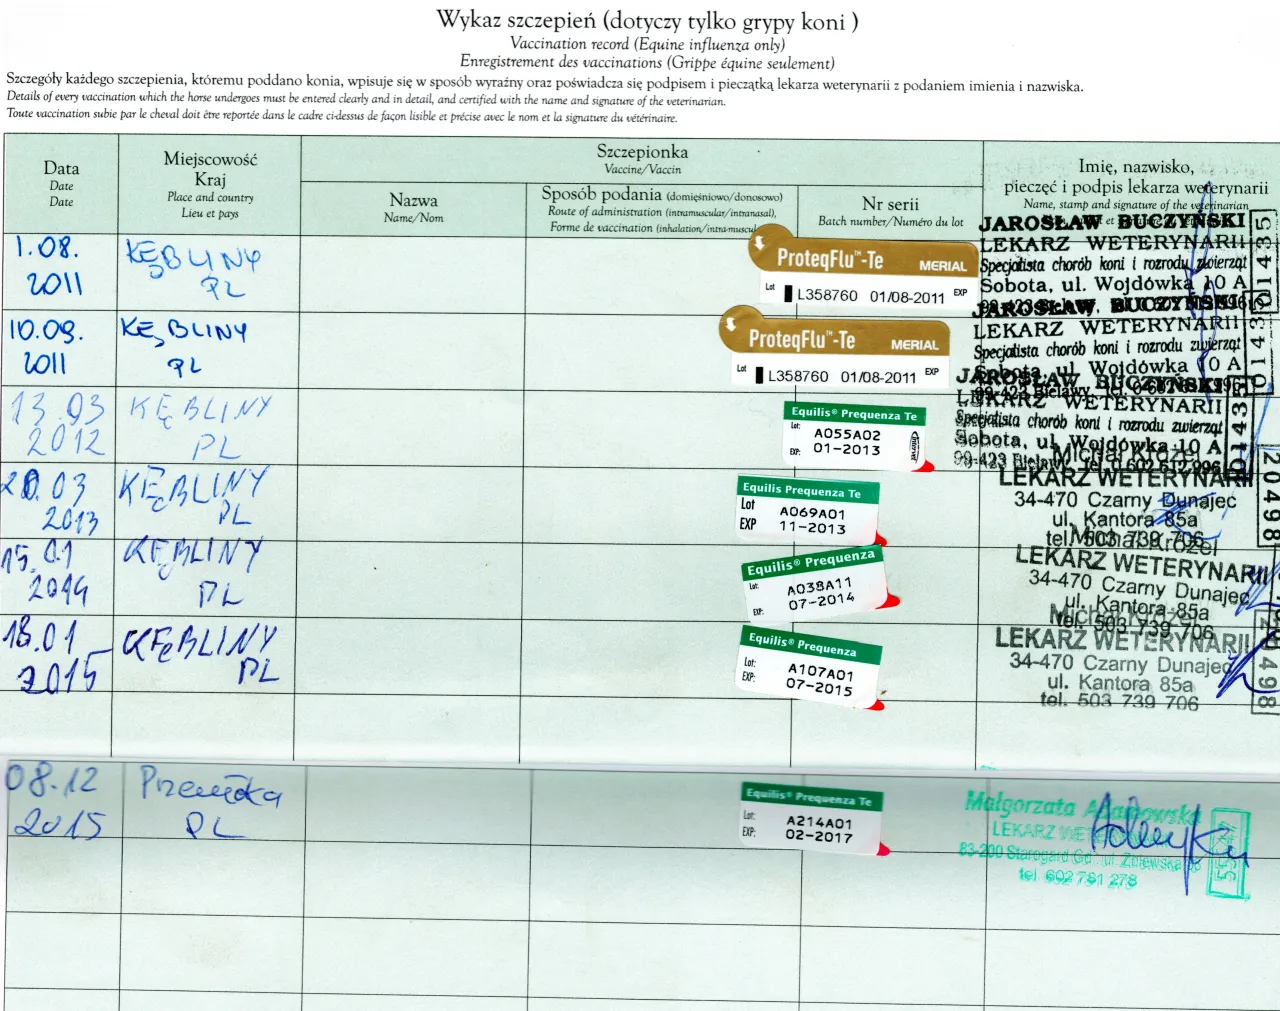 Wykaz szczepień (dotyczy tylko grypy koni )
Vaccination record (Equine influenza only)
Enregistrement des vaccinations (Grippe équine seulement)
Szczegóły każdego szczepienia, któremu poddano konia, wpisuje się w sposób wyraźny oraz poświadcza się podpisem i pieczątką lekarza weterynarii z podaniem imienia i nazwiska.
Details of every vaccination which the horse undergoes must be entered clearly and in detail, and certified with the name and signature of the veterinarian.
Toute vaccination subie par le cheval doit être reportée dans le cadre ci-dessus de façon lisible et précise avec le nom et la signature du vétérinaire.
Data
Date
Date
Miejscowość
Kraj
Place and country
Lieu et pays
Szczepionka
Vaccine/Vaccin
Nazwa
Name/Nom
Sposób podania (domięśniowo/donosowo)
Route of administration (intramuscular/intranasal),
Forme de vaccination (inhalation/intra-muscul
Nr serii
Batch number/Numéro du lot
Imię, nazwisko,
pieczęć i podpis lekarza weterynarii
Name, stamp and signature of the veterinarian
1.08.
2011
KĘBLINY
PL
ProteqFlu™-Te
MERIAL
Lot L358760 01/08-2011 EXP
JAROSŁAW BUCZYŃSKI
LEKARZ WETERYNARII
Specjalista chorób koni i rozrodu zwierząt
Sobota, ul. Wojdówka 10 A
01435
10.09.
2011
KĘBLINY
PL
ProteqFlu™-Te
MERIAL
Lot L358760 01/08-2011 EXP
JAROSŁAW BUCZYŃSKI
LEKARZ WETERYNARII
Specjalista chorób koni i rozrodu zwierząt
Sobota, ul. Wojdówka 10 A
13.03
2012
KĘBLINY
PL
Equilis® Prequenza Te
Lot: A055A02
EXP: 01-2013
Intervet
JAROSŁAW BUCZYŃSKI
LEKARZ WETERYNARII
Specjalista chorób koni i rozrodu zwierząt
Sobota, ul. Wojdówka 10 A
99-423 Bielawy tel. 0 602 612 996
01435
20.03
2013
KĘBLINY
PL
Equilis Prequenza Te
Lot A069A01
EXP 11-2013
LEKARZ WETERYNARII
34-470 Czarny Dunajec
ul. Kantora 85a
tel. 503 739 706
20498
15.01
2014
KĘBLINY
PL
Equilis® Prequenza
Lot: A038A11
EXP: 07-2014
LEKARZ WETERYNARII
34-470 Czarny Dunajec
ul. Kantora 85a
tel. 503 739 706
18.01
2015
KĘBLINY
PL
Equilis® Prequenza
Lot: A107A01
EXP: 07-2015
LEKARZ WETERYNARII
34-470 Czarny Dunajec
ul. Kantora 85a
tel. 503 739 706
20498
08.12
2015
PL
Equilis® Prequenza Te
Lot: A214A01
EXP: 02-2017
Małgorzata
LEKARZ
83-200 Starogard Gd.
tel. 602 781 278